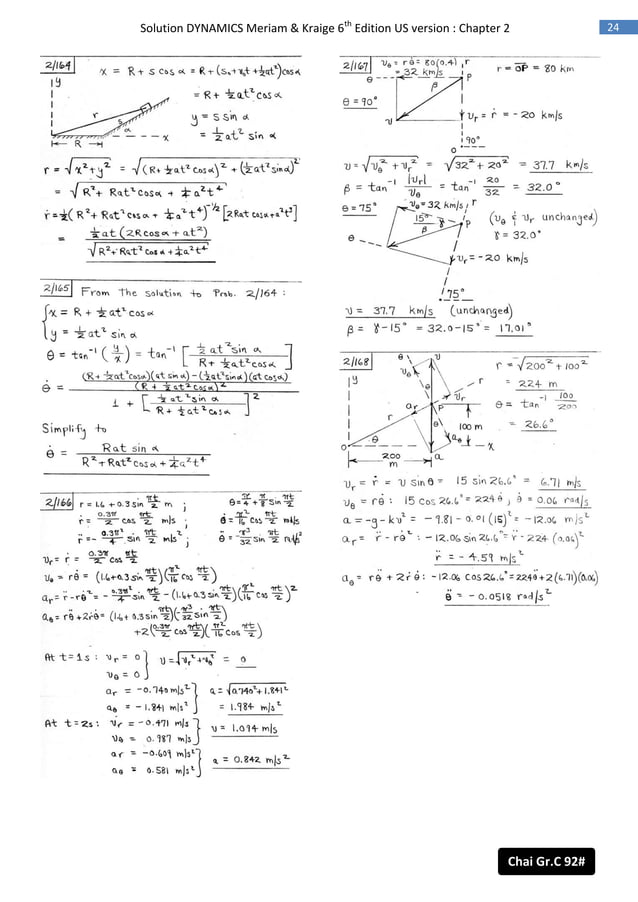 Solution DYNAMICS Meriam & Kraige 6th Edition US version : Chapter 2
24
2/164
x = R + s cos α = R + (s₀+v₀t+½at²)cosα
= R + ½at²cosα
y = s sin α
= ½at² sin α
y
r
s
α
x
R
r = √(x²+y²) = √((R+½at²cosα)² + (½at²sinα)²)
= √(R²+Rat²cosα+¼a²t⁴)
ṙ = ½(R²+Rat²cosα+¼a²t⁴)^(-1/2) [2Rat cosα+a²t³]
= ½at(2Rcosα+at²) / √(R²+Rat²cosα+¼a²t⁴)
2/165 From the solution to Prob. 2/164 :
{x = R + ½at²cosα
y = ½at² sin α
θ = tan⁻¹(y/x) = tan⁻¹[½at²sinα / (R+½at²cosα)]
θ̇ = ((R+½at²cosα)(at sinα)-(½at²sinα)(at cosα)) / (R+½at²cosα)²
1 + [½at²sinα / (R+½at²cosα)]²
Simplify to
θ̇ = Rat sinα / (R²+Rat²cosα+¼a²t⁴)
2/166 r = 1.6 + 0.3 sin πt/2 m ; θ = π/4 + π/8 sin πt/2
ṙ = 0.3π/2 cos πt/2 m/s ; θ̇ = π²/16 cos πt/2
r̈ = - 0.3π²/4 sin πt/2 m/s² ; θ̈ = - π³/32 sin πt/2
υr = ṙ = 0.3π/2 cos πt/2
υθ = rθ̇ = (1.6+0.3 sin πt/2)(π²/16 cos πt/2)
ar = r̈-rθ̇² = - 0.3π²/4 sin πt/2 - (1.6+0.3 sin πt/2)(π²/16 cos πt/2)²
aθ = rθ̈+2ṙθ̇ = (1.6+0.3 sin πt/2)(-π³/32 sin πt/2)
+2(0.3π/2 cos πt/2)(π²/16 cos πt/2)
At t=1s : υr = 0 } υ = √(υr²+υθ²) = 0
υθ = 0
ar = -0.740 m/s² } a = √(0.740²+1.841²)
aθ = -1.841 m/s² = 1.984 m/s²
At t=2s : υr = -0.471 m/s } υ = 1.094 m/s
υθ = 0.987 m/s
ar = -0.609 m/s² } a = 0.842 m/s²
aθ = 0.581 m/s²
2/167 υθ = rθ̇ = 80(0.4) r
= 32 km/s
r = OP = 80 km
θ
β
P
θ = 90°
υ
υr = ṙ = -20 km/s
90°
O
υ = √(υθ²+υr²) = √(32²+20²) = 37.7 km/s
β = tan⁻¹ |υr|/υθ = tan⁻¹ 20/32 = 32.0°
θ = 75°
υθ = 32 km/s r
15° γ
β
P
(υθ & υr unchanged)
γ = 32.0°
θ
υr = -20 km/s
75°
υ = 37.7 km/s (unchanged)
β = γ-15° = 32.0-15° = 17.01°
2/168
θ
υ
υθ
r
υr
y
θ
ar
P
r
θ
aθ
100 m
O
θ
x
200 m
a
r = √(200²+100²)
= 224 m
θ = tan⁻¹ 100/200
= 26.6°
υr = ṙ = υ sin θ = 15 sin 26.6° = 6.71 m/s
υθ = rθ̇ : 15 cos 26.6° = 224θ̇ , θ̇ = 0.06 rad/s
a = -g-kυ² = -9.81-0.01(15)² = -12.06 m/s²
ar = r̈-rθ̇² : -12.06 sin 26.6° = r̈-224(0.06)²
r̈ = -4.59 m/s²
aθ = rθ̈+2ṙθ̇ : -12.06 cos 26.6° = 224θ̈+2(6.71)(0.06)
θ̈ = -0.0518 rad/s²
Chai Gr.C 92#